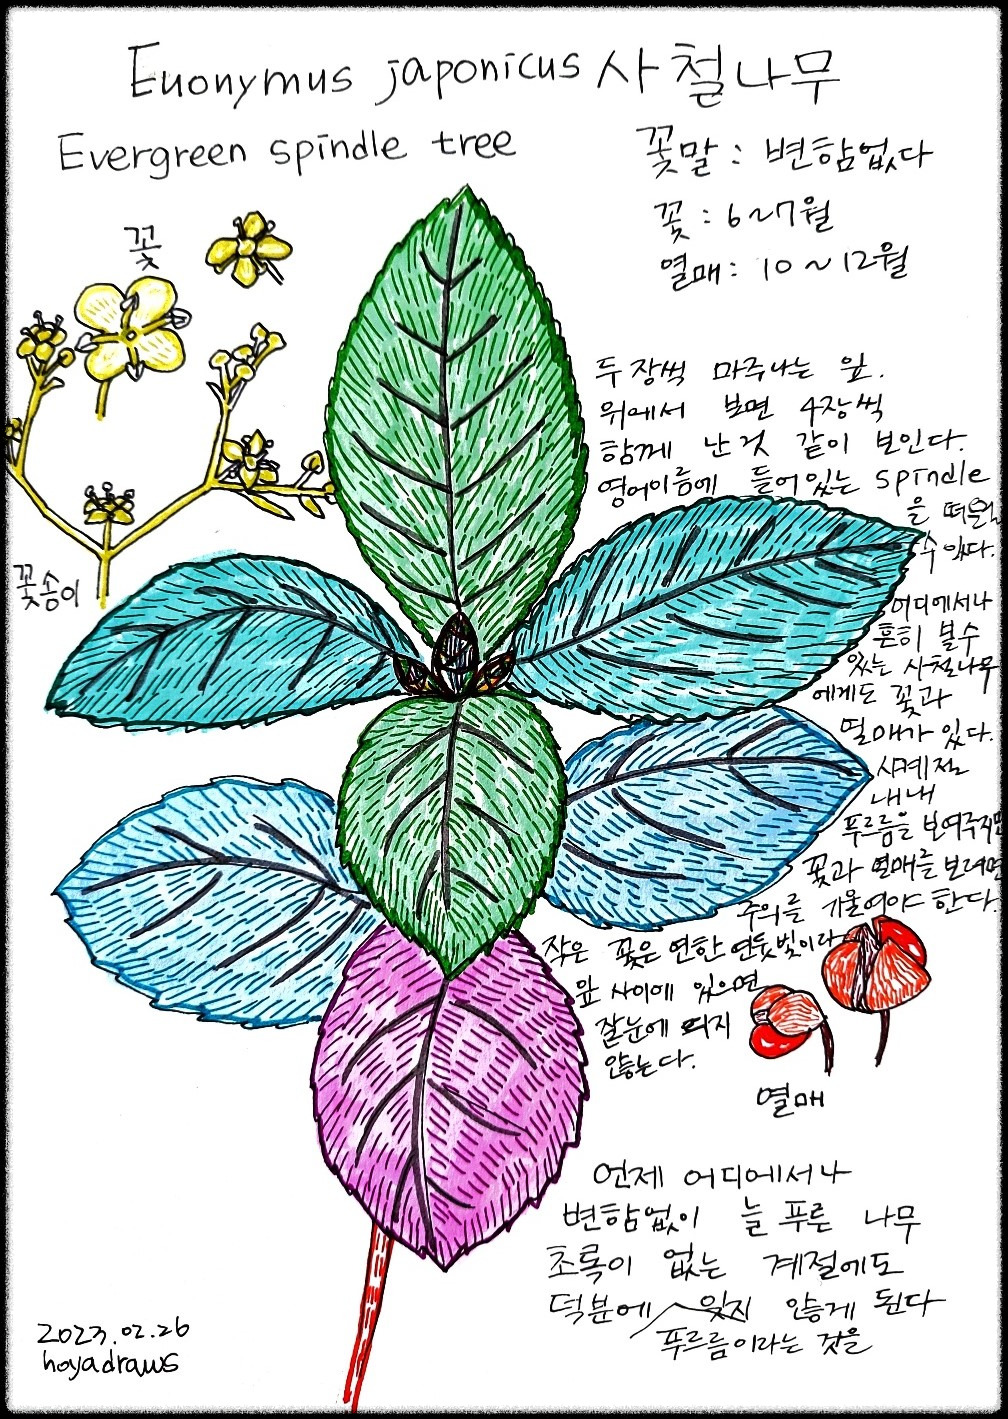 Euonymus japonicus 사철나무
Evergreen spindle tree
꽃말 : 변함없다
꽃 : 6~7월
열매 : 10~12월
꽃
꽃송이
두 장씩 마주나는 잎.
위에서 보면 4장씩
함께 난 것 같이 보인다.
영어이름에 들어있는 spindle
을 떠올릴
수 있다.
어디에서나
흔히 볼수
있는 사철나무
에게도 꽃과
열매가 있다.
사계절
내내
푸르름을 보여주지만
꽃과 열매를 보려면
주의를 기울여야 한다.
작은 꽃은 연한 연둣빛이라
잎 사이에 있으면
잘 눈에 띄지
않는다.
열매
언제 어디에서나
변함없이 늘 푸른 나무
초록이 없는 계절에도
덕분에 잊지 않게 된다
푸르름이라는 것을
2023.02.26
hoyadraws